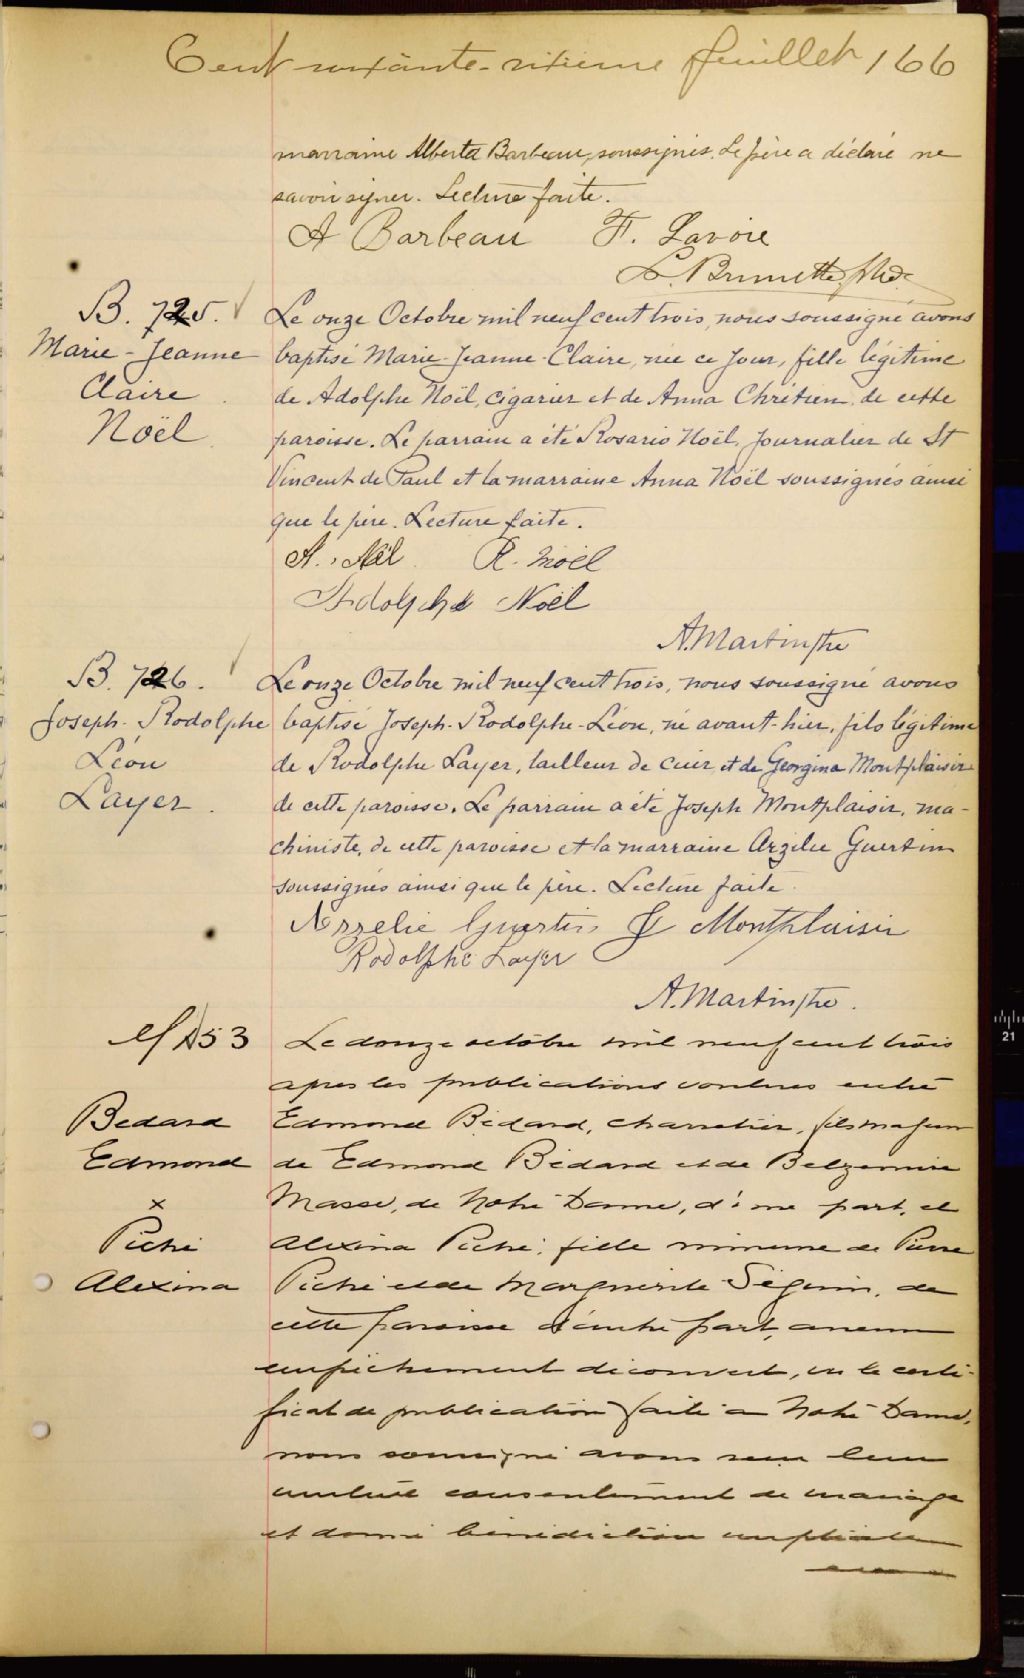 Cent soixante-sixième feuillet 166
marraine Alberta Barbeau, soussignés. Le père a déclaré ne
savoir signer. Lecture faite.
A Barbeau F. Lavoie
L. Brunette, ptre
B. 725.
Marie-Jeanne
Claire
Noël
Le onze Octobre mil neuf cent trois, nous soussigné avons
baptisé Marie-Jeanne-Claire, née ce jour, fille légitime
de Adolphe Noël, cigarier et de Anna Chrétien de cette
paroisse. Le parrain a été Rosario Noël, journalier de St
Vincent de Paul et la marraine Anna Noël soussignés ainsi
que le père. Lecture faite.
A. Noël R. Noël
Adolphe Noël
A. Martin, ptre
B. 726.
Joseph-Rodolphe
Léon
Layer
Le onze Octobre mil neuf cent trois, nous soussigné avons
baptisé Joseph-Rodolphe-Léon, né avant-hier, fils légitime
de Rodolphe Layer, tailleur de cuir et de Georgina Montplaisir
de cette paroisse. Le parrain a été Joseph Montplaisir, ma-
chiniste, de cette paroisse et la marraine Arzélie Guertin
soussignés ainsi que le père. Lecture faite.
Arzelie Guertin J Montplaisir
Rodolphe Layer
A. Martin, ptre.
M 153
Bedard
Edmond
x
Piché
Alexina
Le douze octobre mil neuf cent trois
après les publications voulues entre
Edmond Bédard, charretier, fils majeur
de Edmond Bédard et de Belzemire
Masse, de Notre Dame, d'une part, et
Alexina Piché, fille mineure de Pierre
Piché et de Marguerite Séguin, de
cette paroisse d'autre part, aucun
empêchement découvert, vu le certi-
ficat de publication faite a Notre Dame,
nous soussigné avons reçu leur
mutuel consentement de mariage
et donné bénédiction nuptiale